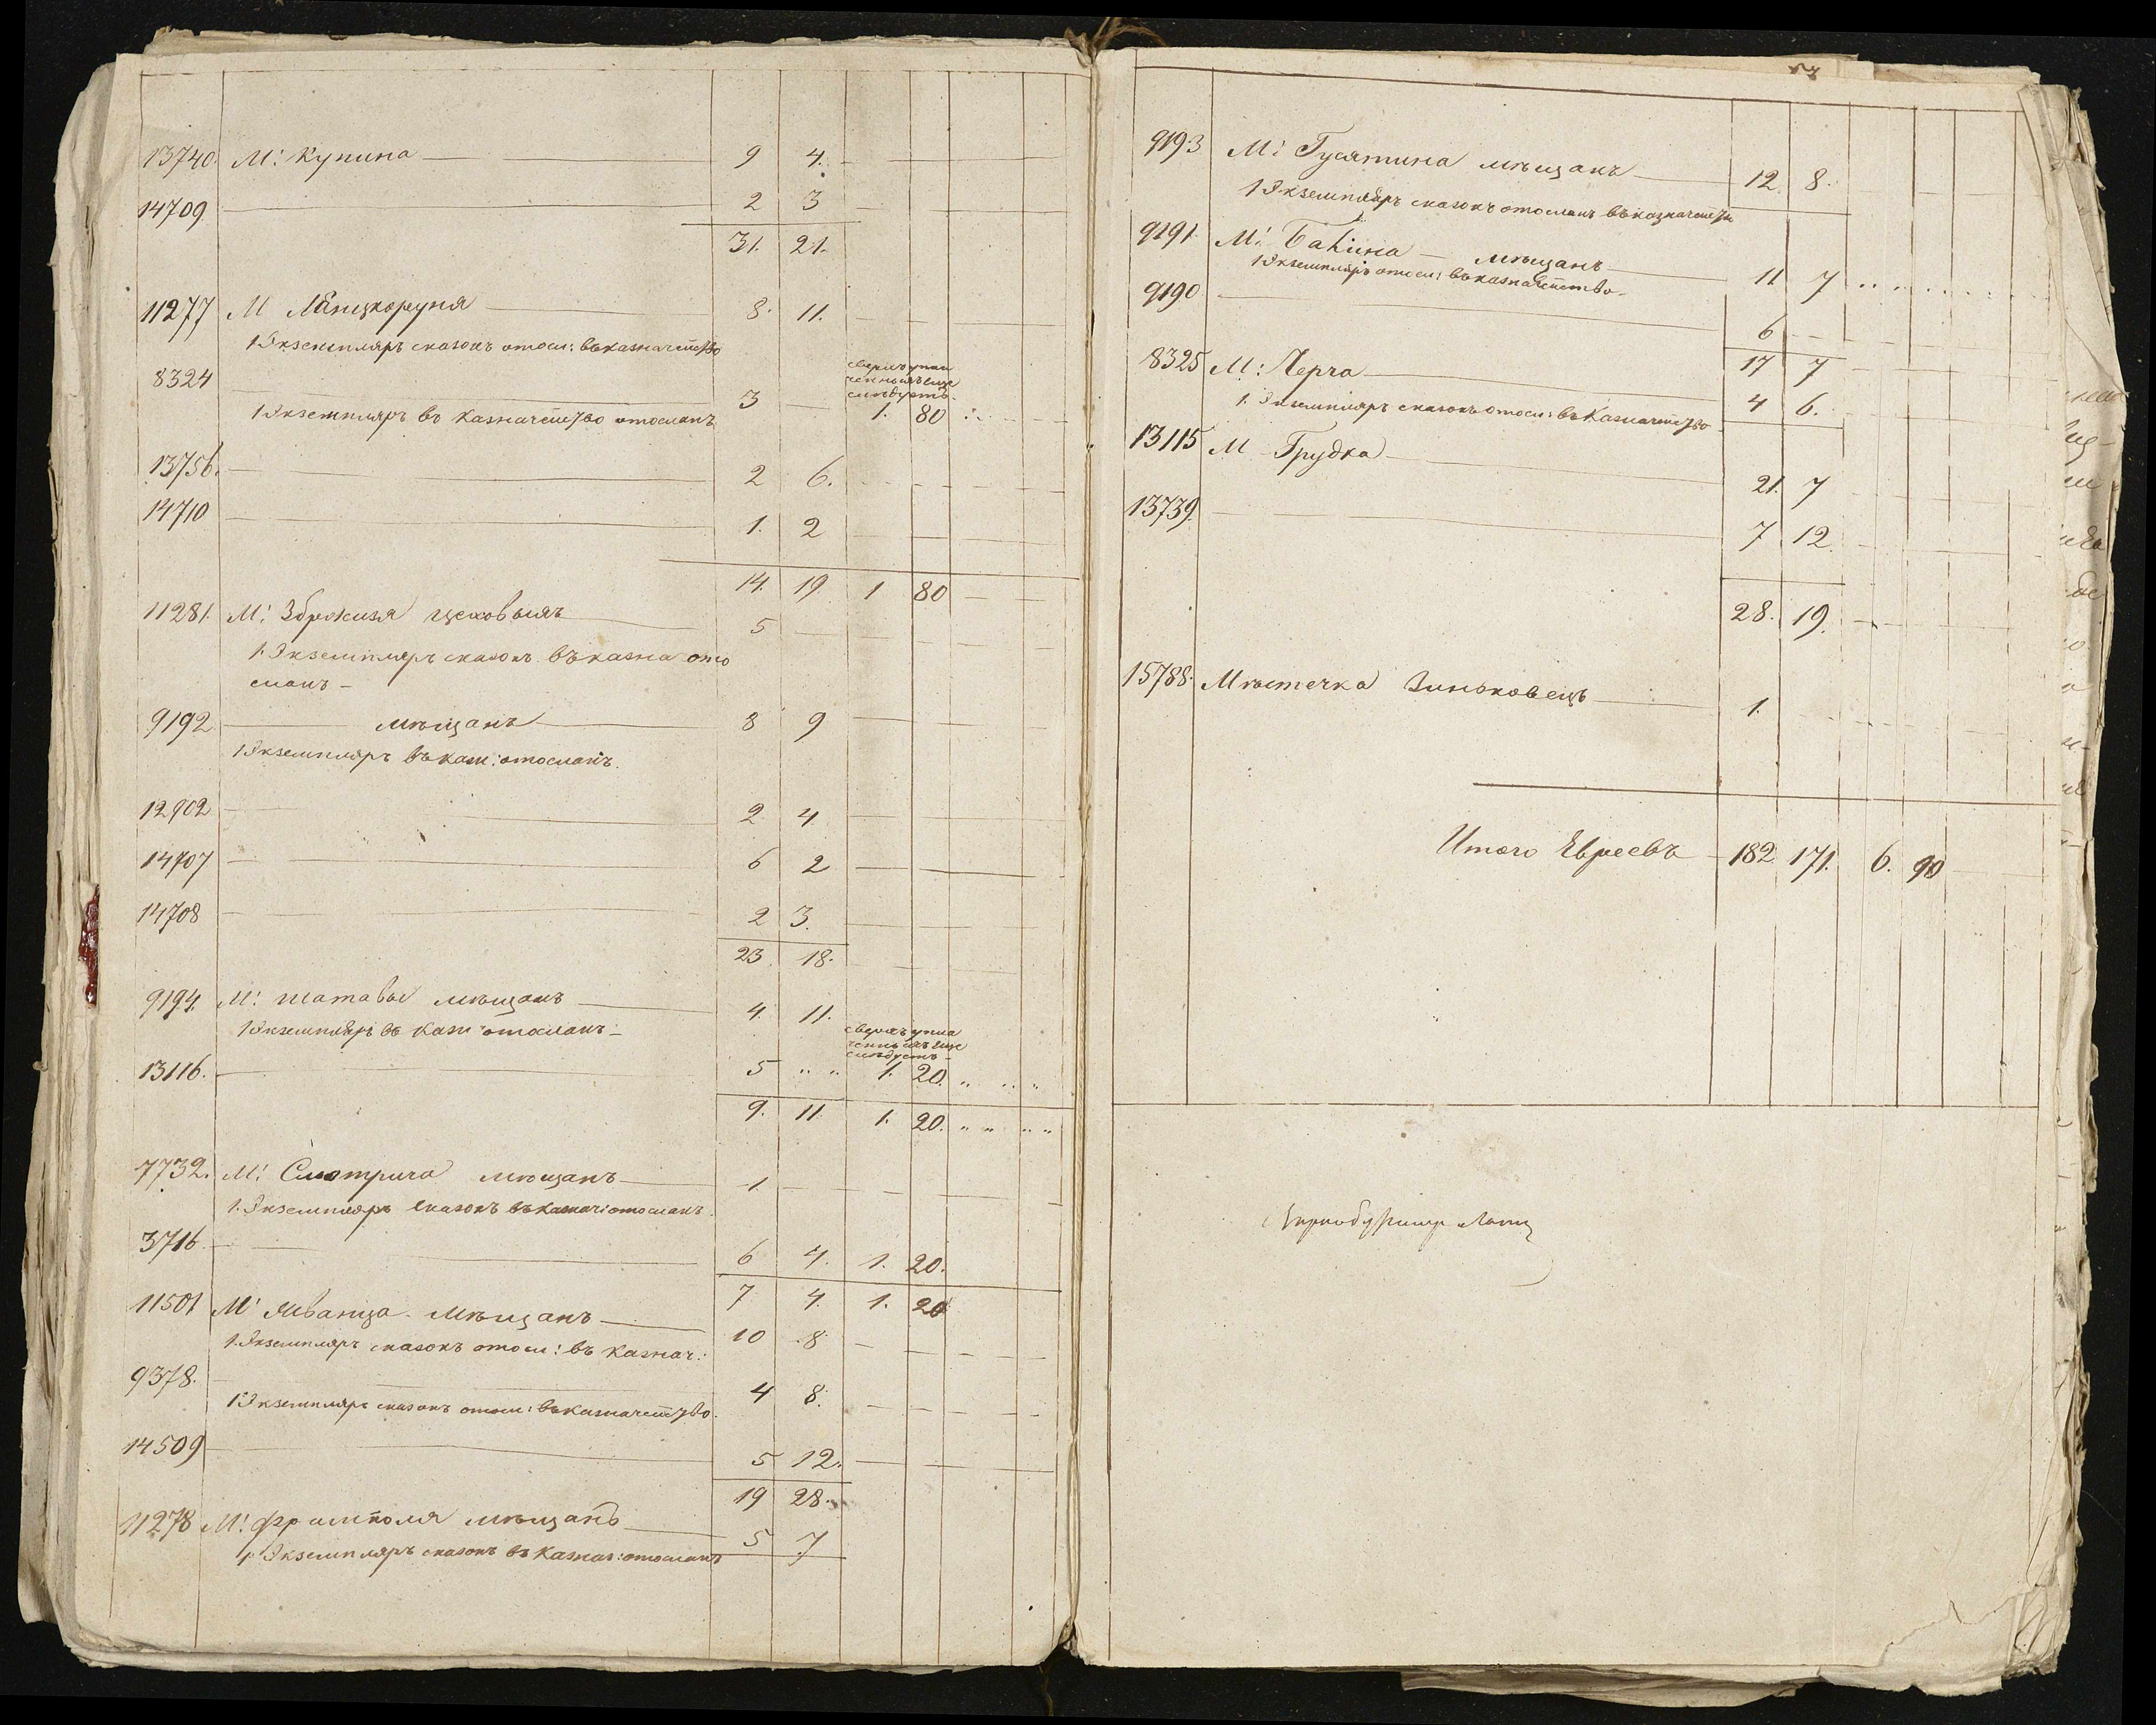 13740. М: Купина 9 4.
14709 2 3
31. 21.
11277 М Лянцкоруня 8. 11.
1 Экземпляръ сказокъ отосл: въ казначейство
сверхъ упла
ченныхъ еще
слѣдуетъ
8324 3 1. 80
1 Экземпляръ въ казначейство отосланъ
13756. 2 6.
14710 1. 2
14. 19 1 80
11281. М: Збрижзя цеховыхъ 5
1. Экземпляръ сказокъ въ казна ото
сланъ
9192 мѣщанъ 8 9
1 Экземпляръ въ казн: отосланъ.
12902 2 4
14707 6 2
14708 2 3.
23 18.
9194. М: Шатавы мѣщанъ 4. 11.
1 Экземпляръ въ казн отосланъ
сверхъ упла
ченныхъ еще
слѣдуетъ
13116. 5 1. 20.
9. 11. 1. 20.
7732. М: Смотрича мѣщанъ 1.
1. Экземпляръ сказокъ въ казнач: отосланъ.
3716 6 4. 1. 20.
7 4. 1. 20
11501 М: Жванца мѣщанъ 10 8
1. Экземпляръ сказокъ отосл: въ казнач:
9378. 4 8.
1 Экземпляръ сказокъ отосл: въ казначейство.
14509 5 12.
19 28.
11278 М: Фрампола мѣщанъ 5 7
1 Экземпляръ сказокъ въ казнач: отосланъ
9193 М: Гусятина мѣщанъ 12. 8.
1 Экземпляръ сказокъ отосланъ въ казначейств
9191. М: мѣщанъ 11 7
1 Экземпляръ отосл: въ казначейство
9190 6
17 7
8325 М: Черча 4 6.
1. Экземпляръ сказокъ отосл: въ казначейство
13115 М Грудка 21. 7
13739. 7 12.
28. 19.
15788. Мѣстечка Зиньковецъ 1.
Итого Евреевъ 182. 171. 6. 90